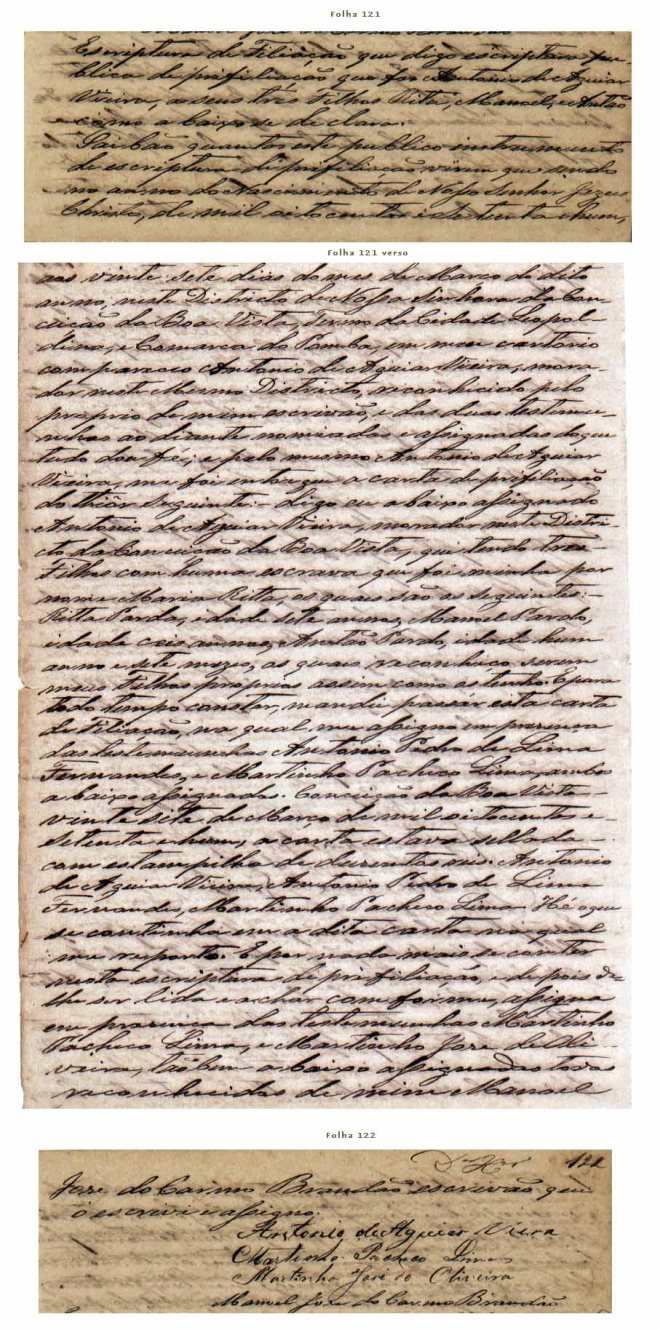 Folha 121
Escriptura de Filiação que digo escriptura pu-
blica de prifiliação que fas Antonio de Aguiar
Vieira, a seus três Filhos Rita, Manoel, e Antão
como abaixo se declara.
Saibão quantos este publico instrumento
de escriptura de prifiliação virem que sendo
no anno do Nascimento de Nosso Senhor Jezus
Christo, de mil oito centos e setenta e hum,
Folha 121 verso
aos vinte sete dias do mes de Março do dito
anno, neste Districto de Nossa Senhora da Con-
ceição da Boa Vista, Termo da Cidade Leopol-
dina, e Comarca do Pomba, em meu cartorio
compareceo Antonio de Aguiar Vieira, mora-
dor neste Mesmo Districto, reconhecido pelo
proprio de mim escrivão, e das duas testemu-
nhas ao diante nomiadas e assignadas do que
tudo dou fé; e pelo mesmo Antonio de Aguiar
Vieira, me foi entregue a carta de prifiliação
do thiôr seguinte: Digo eu abaixo assignado
Antonio de Aguiar Vieira, morador neste Distri-
cto da Conceição da Boa Vista, que tendo tres
Filhos com huma escrava, que foi minha por
nome Maria Ritta, os quais são os seguintes:-
Ritta Parda, idade sete annos, Manoel Pardo,
idade ceis annos, Antão Pardo, idade hum
anno e sete mezes, os quais reconheco serem
meus Filhos proprios assim como os tenho. E para
todo tempo constar, mandei passár esta carta
de Filiação, na qual me assigno em prezença
das testemunhas Antonio Pedro de Lima
Fernandes, e Martinho Pacheco Lima, ambos
abaixo assignados. Conceição da Boa Vista
vinte sete de Março de mil oitocentos e
setenta e hum, a carta estava sellada
com estampilha de duzentos reis. Antonio
de Aguiar Vieira, Antonio Pedro de Lima
Fernandes, Martinho Pacheco Lima. Hé o que
se continha em a dita carta na qual
me reporto. E por nada mais se conter
nesta escriptura de prifiliação, e depois de
lhe ser lida e achar comforme, assigna
em prezença das testemunhas Martinho
Pacheco Lima, e Martinho Jose de Oli-
veira, tãobem abaixo assignadas todas
reconhecidas de mim Manoel
Folha 122
122
Jose do Carmo Brandão escrivão que
o escrevi e assigno.
Antonio de Aguiar Vieira
Martinho Pacheco Lima
Martinho José de Oliveira
Manoel Jose do Carmo Brandão